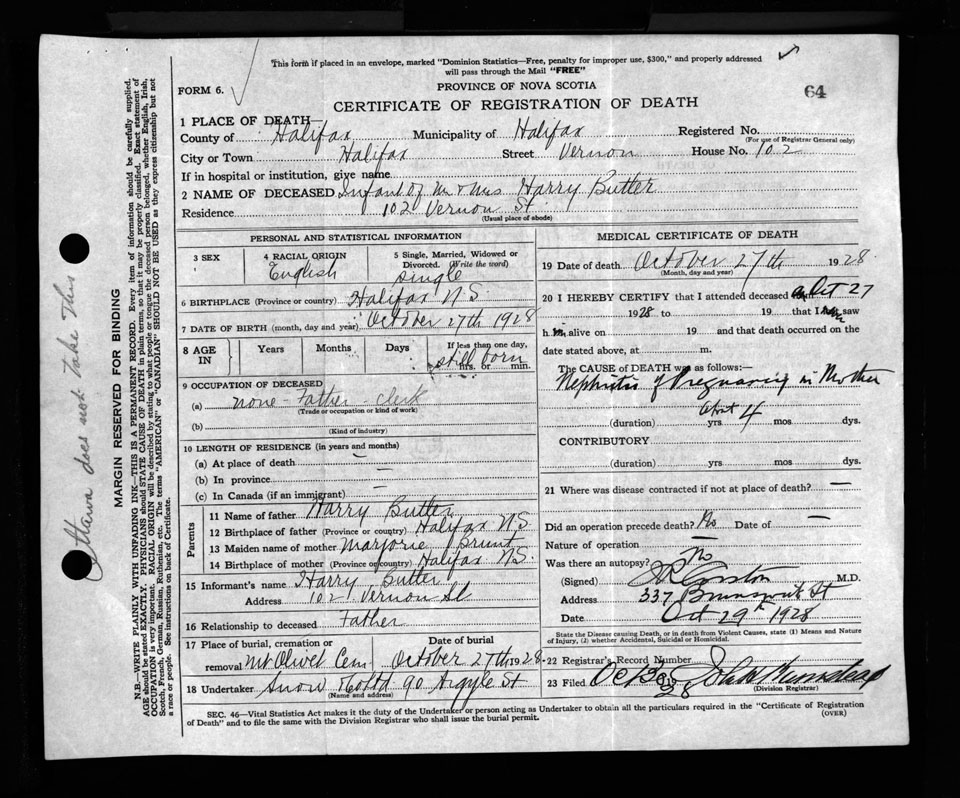 This form if placed in an envelope, marked "Dominion Statistics—Free, penalty for improper use, $300," and properly addressed
will pass through the Mail "FREE"
FORM 6.
PROVINCE OF NOVA SCOTIA
64
CERTIFICATE OF REGISTRATION OF DEATH
1 PLACE OF DEATH
County of Halifax Municipality of Halifax Registered No.
(For use of Registrar General only)
City or Town Halifax Street Vernon House No. 102
If in hospital or institution, give name
2 NAME OF DECEASED Infant of Mr & Mrs Harry Butler
Residence 102 Vernon St
(Usual place of abode)
PERSONAL AND STATISTICAL INFORMATION
3 SEX
4 RACIAL ORIGIN
English
5 Single, Married, Widowed or
Divorced. (Write the word)
single
6 BIRTHPLACE (Province or country) Halifax N.S.
7 DATE OF BIRTH (month, day and year) October 27th 1928
8 AGE IN Years Months Days If less than one day,
still born
hrs. or min.
9 OCCUPATION OF DECEASED
(a) none - Father - clerk
(Trade or occupation or kind of work)
(b)
(Kind of industry)
10 LENGTH OF RESIDENCE (in years and months)
(a) At place of death —
(b) In province —
(c) In Canada (if an immigrant) —
Parents
11 Name of father Harry Butler
12 Birthplace of father (Province or country) Halifax N.S.
13 Maiden name of mother Marjorie Brunt
14 Birthplace of mother (Province or country) Halifax N.S.
15 Informant's name Harry Butler
Address 102 Vernon St
16 Relationship to deceased Father
17 Place of burial, cremation or Date of burial
removal Mt Olivet Cem October 27th 1928
18 Undertaker Snow & Co Ltd 90 Argyle St
(Name and address)
MEDICAL CERTIFICATE OF DEATH
19 Date of death October 27th 1928
(Month, day and year)
20 I HEREBY CERTIFY that I attended deceased Oct 27
1928 to 19 that I saw
h alive on 19 and that death occurred on the
date stated above, at m.
The CAUSE of DEATH was as follows:—
Nephritis of Pregnancy in Mother
(duration) yrs about 4 mos dys.
CONTRIBUTORY
(duration) yrs mos dys.
21 Where was disease contracted if not at place of death? —
Did an operation precede death? No Date of —
Nature of operation —
Was there an autopsy? No
(Signed) M.D.
Address 337 Brunswick St
Date Oct 29th 1928
State the Disease causing Death, or in death from Violent Causes, state (1) Means and Nature
of Injury, (2) whether Accidental, Suicidal or Homicidal.
22 Registrar's Record Number
23 Filed Oct
(Division Registrar)
SEC. 46—Vital Statistics Act makes it the duty of the Undertaker or person acting as Undertaker to obtain all the particulars required in the "Certificate of Registration
of Death" and to file the same with the Division Registrar who shall issue the burial permit.
(OVER)
Ottawa does not take this
MARGIN RESERVED FOR BINDING
N.B.—WRITE PLAINLY WITH UNFADING INK—THIS IS A PERMANENT RECORD. Every item of information should be carefully supplied.
AGE should be stated EXACTLY. PHYSICIANS should STATE CAUSE OF DEATH in plain terms, so that it may be properly classified. Exact statement of
OCCUPATION is very important. RACIAL ORIGIN will be described by stating to what people or tongue the deceased person belonged, whether English, Irish,
Scotch, French, German, Russian, Ruthenian, etc. The terms "AMERICAN" or "CANADIAN" SHOULD NOT BE USED as they express citizenship but not
a race or people. See instructions on back of Certificate.